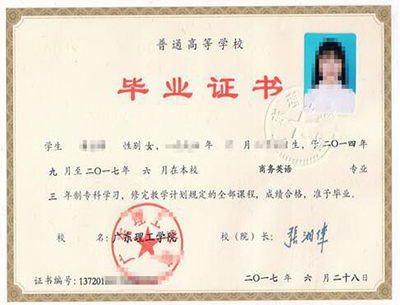 普通高等学校
毕业证书
学生 性别 女， 月 生，于二〇一四年
九月至二〇一七年 六月在本校 商务英语 专业
三 年制专科学习，修完教学计划规定的全部课程，成绩合格，准予毕业。
校 名：广东理工学院 校（院）长：
证书编号：13720
二〇一七年 六月二十八日